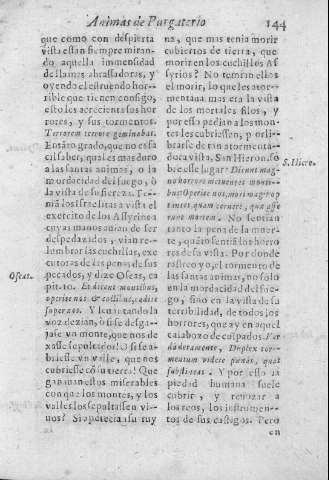 Animas de Purgatorio
144
que como con despierta
vista estàn siempre miran-
do aquella immensidad
de llamas abrassadoras, y
oyendo el estruendo horr-
rible que tienen consigo,
esto les acrecienta sus hor-
rores, y sus tormentos.
Terrorem terrore geminabat.
En tãto grado, que no es fa-
cil saber, qual es mas duro
a las santas animas, o la
mordacidad del fuego, ò
la vista de su fiereza. Te-
miã los Israelitas a vista el
exercito de los Assyrios a
cuyas manos avian de ser
despedazados, y vian re-
lumbrar las cuchillas, exe-
cutoras de las penas de sus
pecados, y dize Oseas, ca
pit. 10. Et dicent montibus,
operite nos & collibus, cadite
super nos. Y levantando la
voz dezian, ò si se desga-
jasse un monte, que nos de-
xasse sepultados! O si se a-
briesse un valle, que nos
cubriesse cõ su tierra! Que
ganã en estos miserables
con que los montes, y los
valles los sepultassen vi-
vos? Si aprecia a su ruy
Oseas.
na, que mas tenia morir
cubiertos de tierra, que
morir en los cuchillos As
syrios? No temian ellos
el morir, lo que les ator-
mentaua mas era la vista
de los mortales filos, y
por essa pedian a los mon-
tes les cubriessen, por li-
brarse de tan atormenta-
dora vista. San Hieron. so
bre esse lugar: Dicunt mag-
no horrore metuentes monti-
bus operite nos, mori magis
timent, quam cernere, quæ affe
runt mortem. No sentian
tanto la pena de la muer-
te, quãto sentiã los horro
res de su vista. Por donde
rastreo yo, el tormento de
las santas animas, no solo
en la mordacidad del fue-
go, sino en la vista de su
terribilidad, de todos los
horrores, que ay en aquel
calabozo de culpados.
Duplex tor-
mentum videre pœnas, quas
Y por esso la
piedad humana suele
cubrir, y rebozar a
los reos, los instrumen-
tos de sus castigos. Pero
S. Hiero.
en